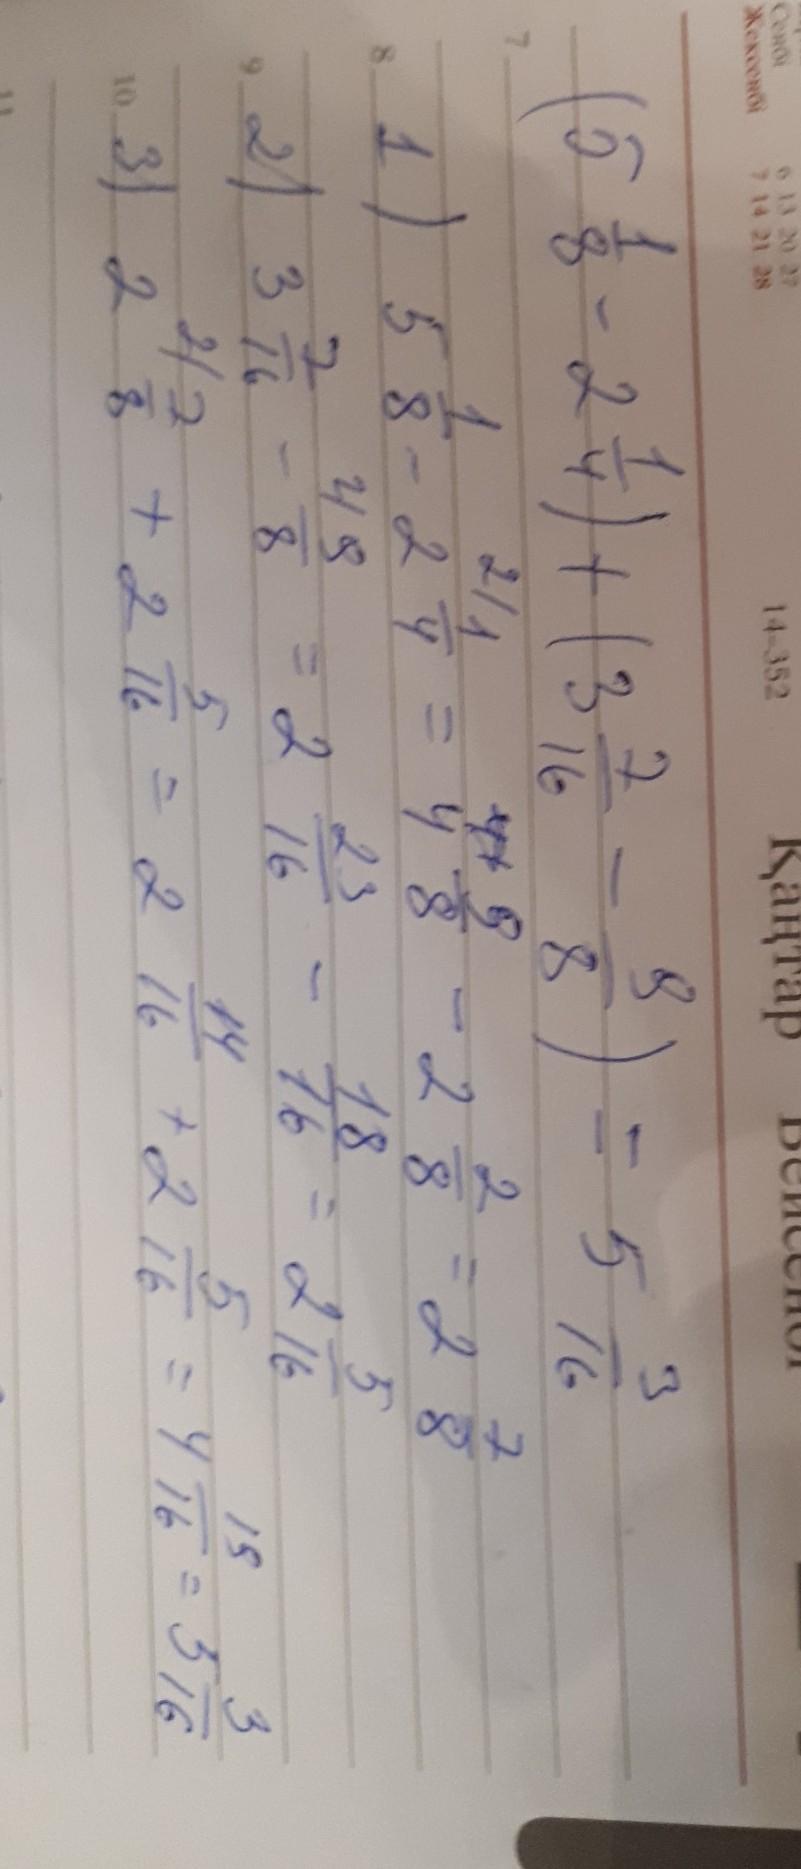 Сенбі 6 13 20 27
Жексенбі 7 14 21 28
14-352
Қаңтар Бейсенбі
(5 1/8 - 2 1/4) + (3 7/16 - 9/8) = 5 3/16
7
8 1) 5 1/8 - 2 1/4 = 4 9/8 - 2 2/8 = 2 7/8
9 2) 3 7/16 - 9/8 = 2 23/16 - 18/16 = 2 5/16
10 3) 2 7/8 + 2 5/16 = 2 14/16 + 2 5/16 = 4 19/16 = 5 3/16
11